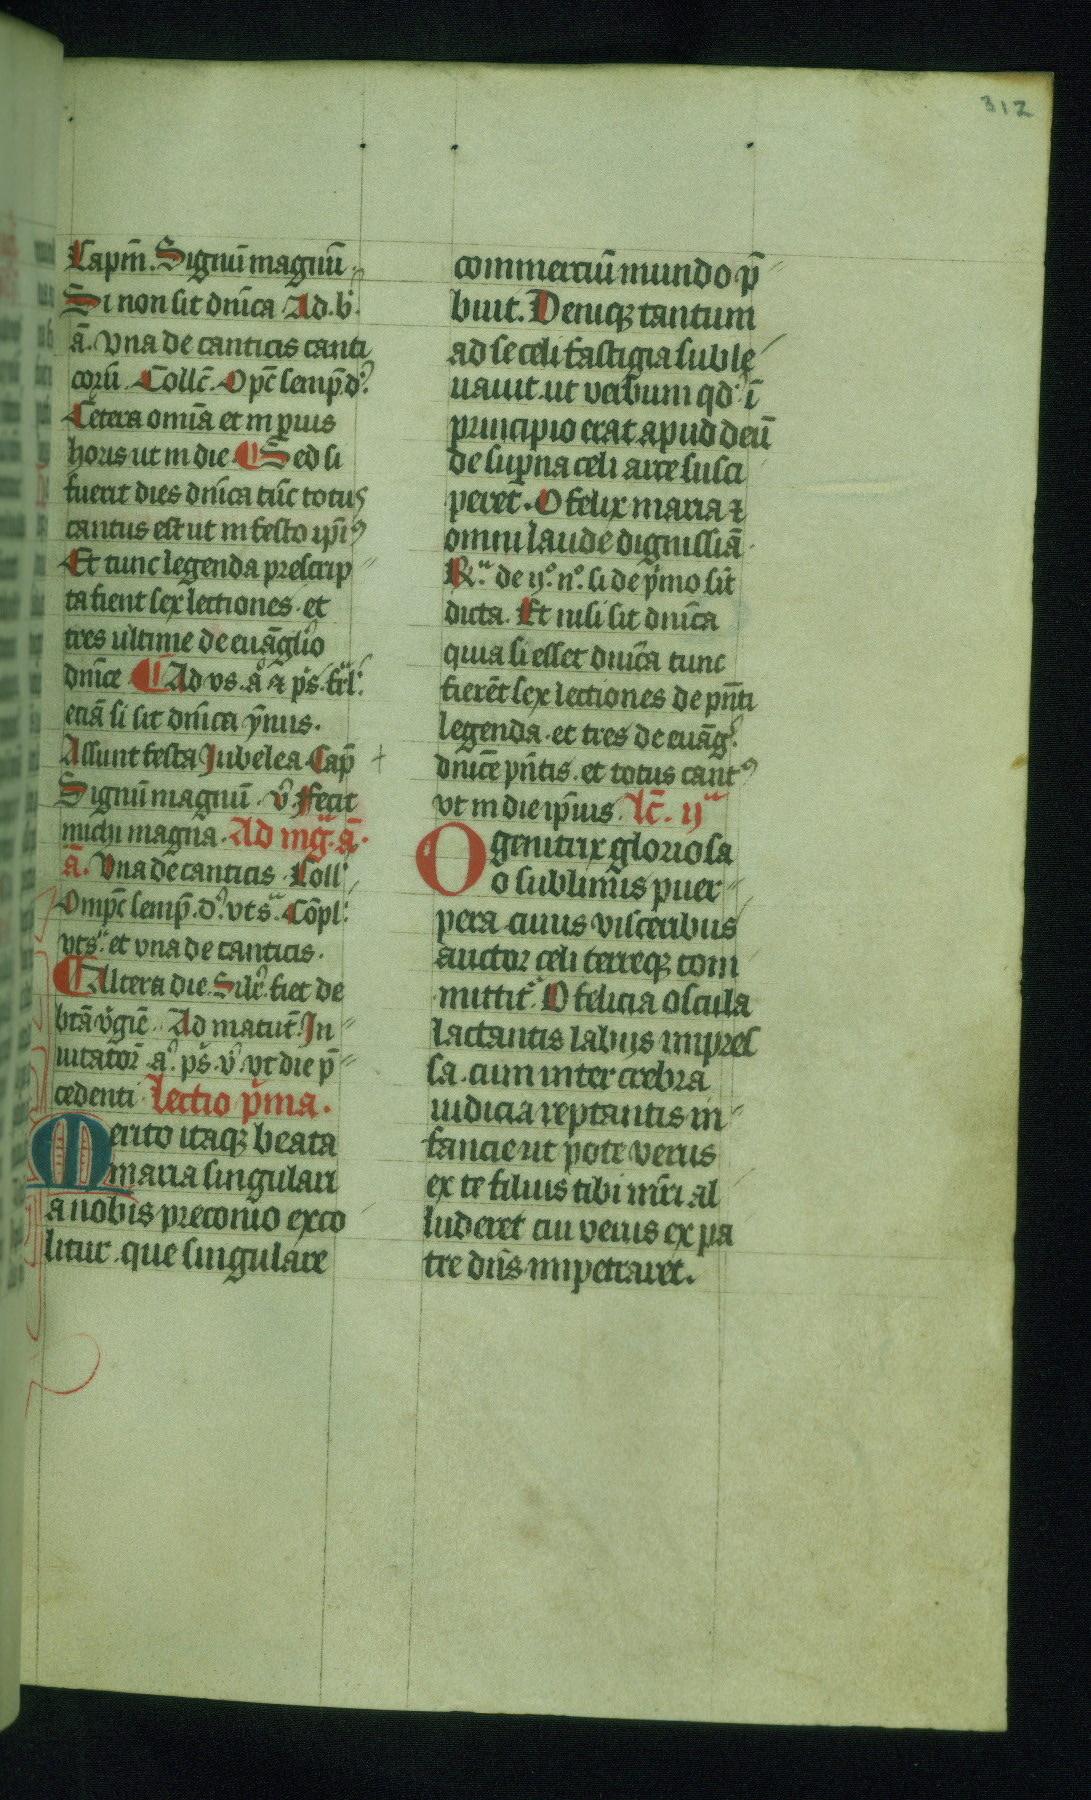 312
Capm̄. Signū magnū.
Si non sit dn̄ica Ad. b̄.
ā. Vna de canticis canti
corū. Collc̄. Opc̄ semp̄ d᷒.
Cetera omīa et in p̄uis
horis ut in die. ¶ Sed si
fuerit dies dn̄ica tūc totus
cantus est ut in festo ip̄i᷒
Et tunc legenda prescrip
ta fient sex lectiones. et
tres ultime de euāglio
dn̄ice ¶ Ad vs. a᷒ ⁊ ps̄. fr̄l.
etiā si sit dn̄ica ẏmus.
Assunt festa Jubelea. Cap̄
Signū magnū. v̄. Fecit
michi magna. Ad mḡ. ā.
ā. Vna de canticis. Coll᷒
Omp̄c semp̄. d᷒. vt sᵃ. Cōpl.
vt sᵃ. et vna de canticis.
¶ Altera die. Silr̄. fiet de
btā v̄gie. Ad matut̄. In
uitator̄. a᷒. ps̄. v᷒. vt die p̄
cedenti. Lectio p̄ma.
Merito itaqꝫ beata
maria singulari
a nobis preconio exco
litur. que singulare
commerciū mundo p̄
buit. Deniqꝫ tantum
ad se celi fastigia suble
uauit. ut verbum qd᷒ ī
principio erat apud deū
de sup̄na celi arce susci
peret. O felix maria ⁊
omni laude dignissiā.
R̄ᵃ. de ij᷒. n᷒. si de p̄mo sīt
dicta. Et nisi sit dn̄ica
quia si esset dn̄ica tunc
fierēt sex lectiones de pn̄ti
legenda. et tres de euāg᷒.
dn̄ice pn̄tis. et totus cant᷒
vt in die ip̄ius. Lc̄. ijᵃ
O genitrix gloriosa
o sublimis puer
pera. cuius visceribus
auctor celi terreqꝫ com
mittit᷒. O felicia oscula
lactantis labijs impres
sa. cum inter crebra
iudicia reptantis in
fancie ut pote verus
ex te filius tibi mr̄i al
luderet cū verus ex pa
tre dn̄s impetraret.